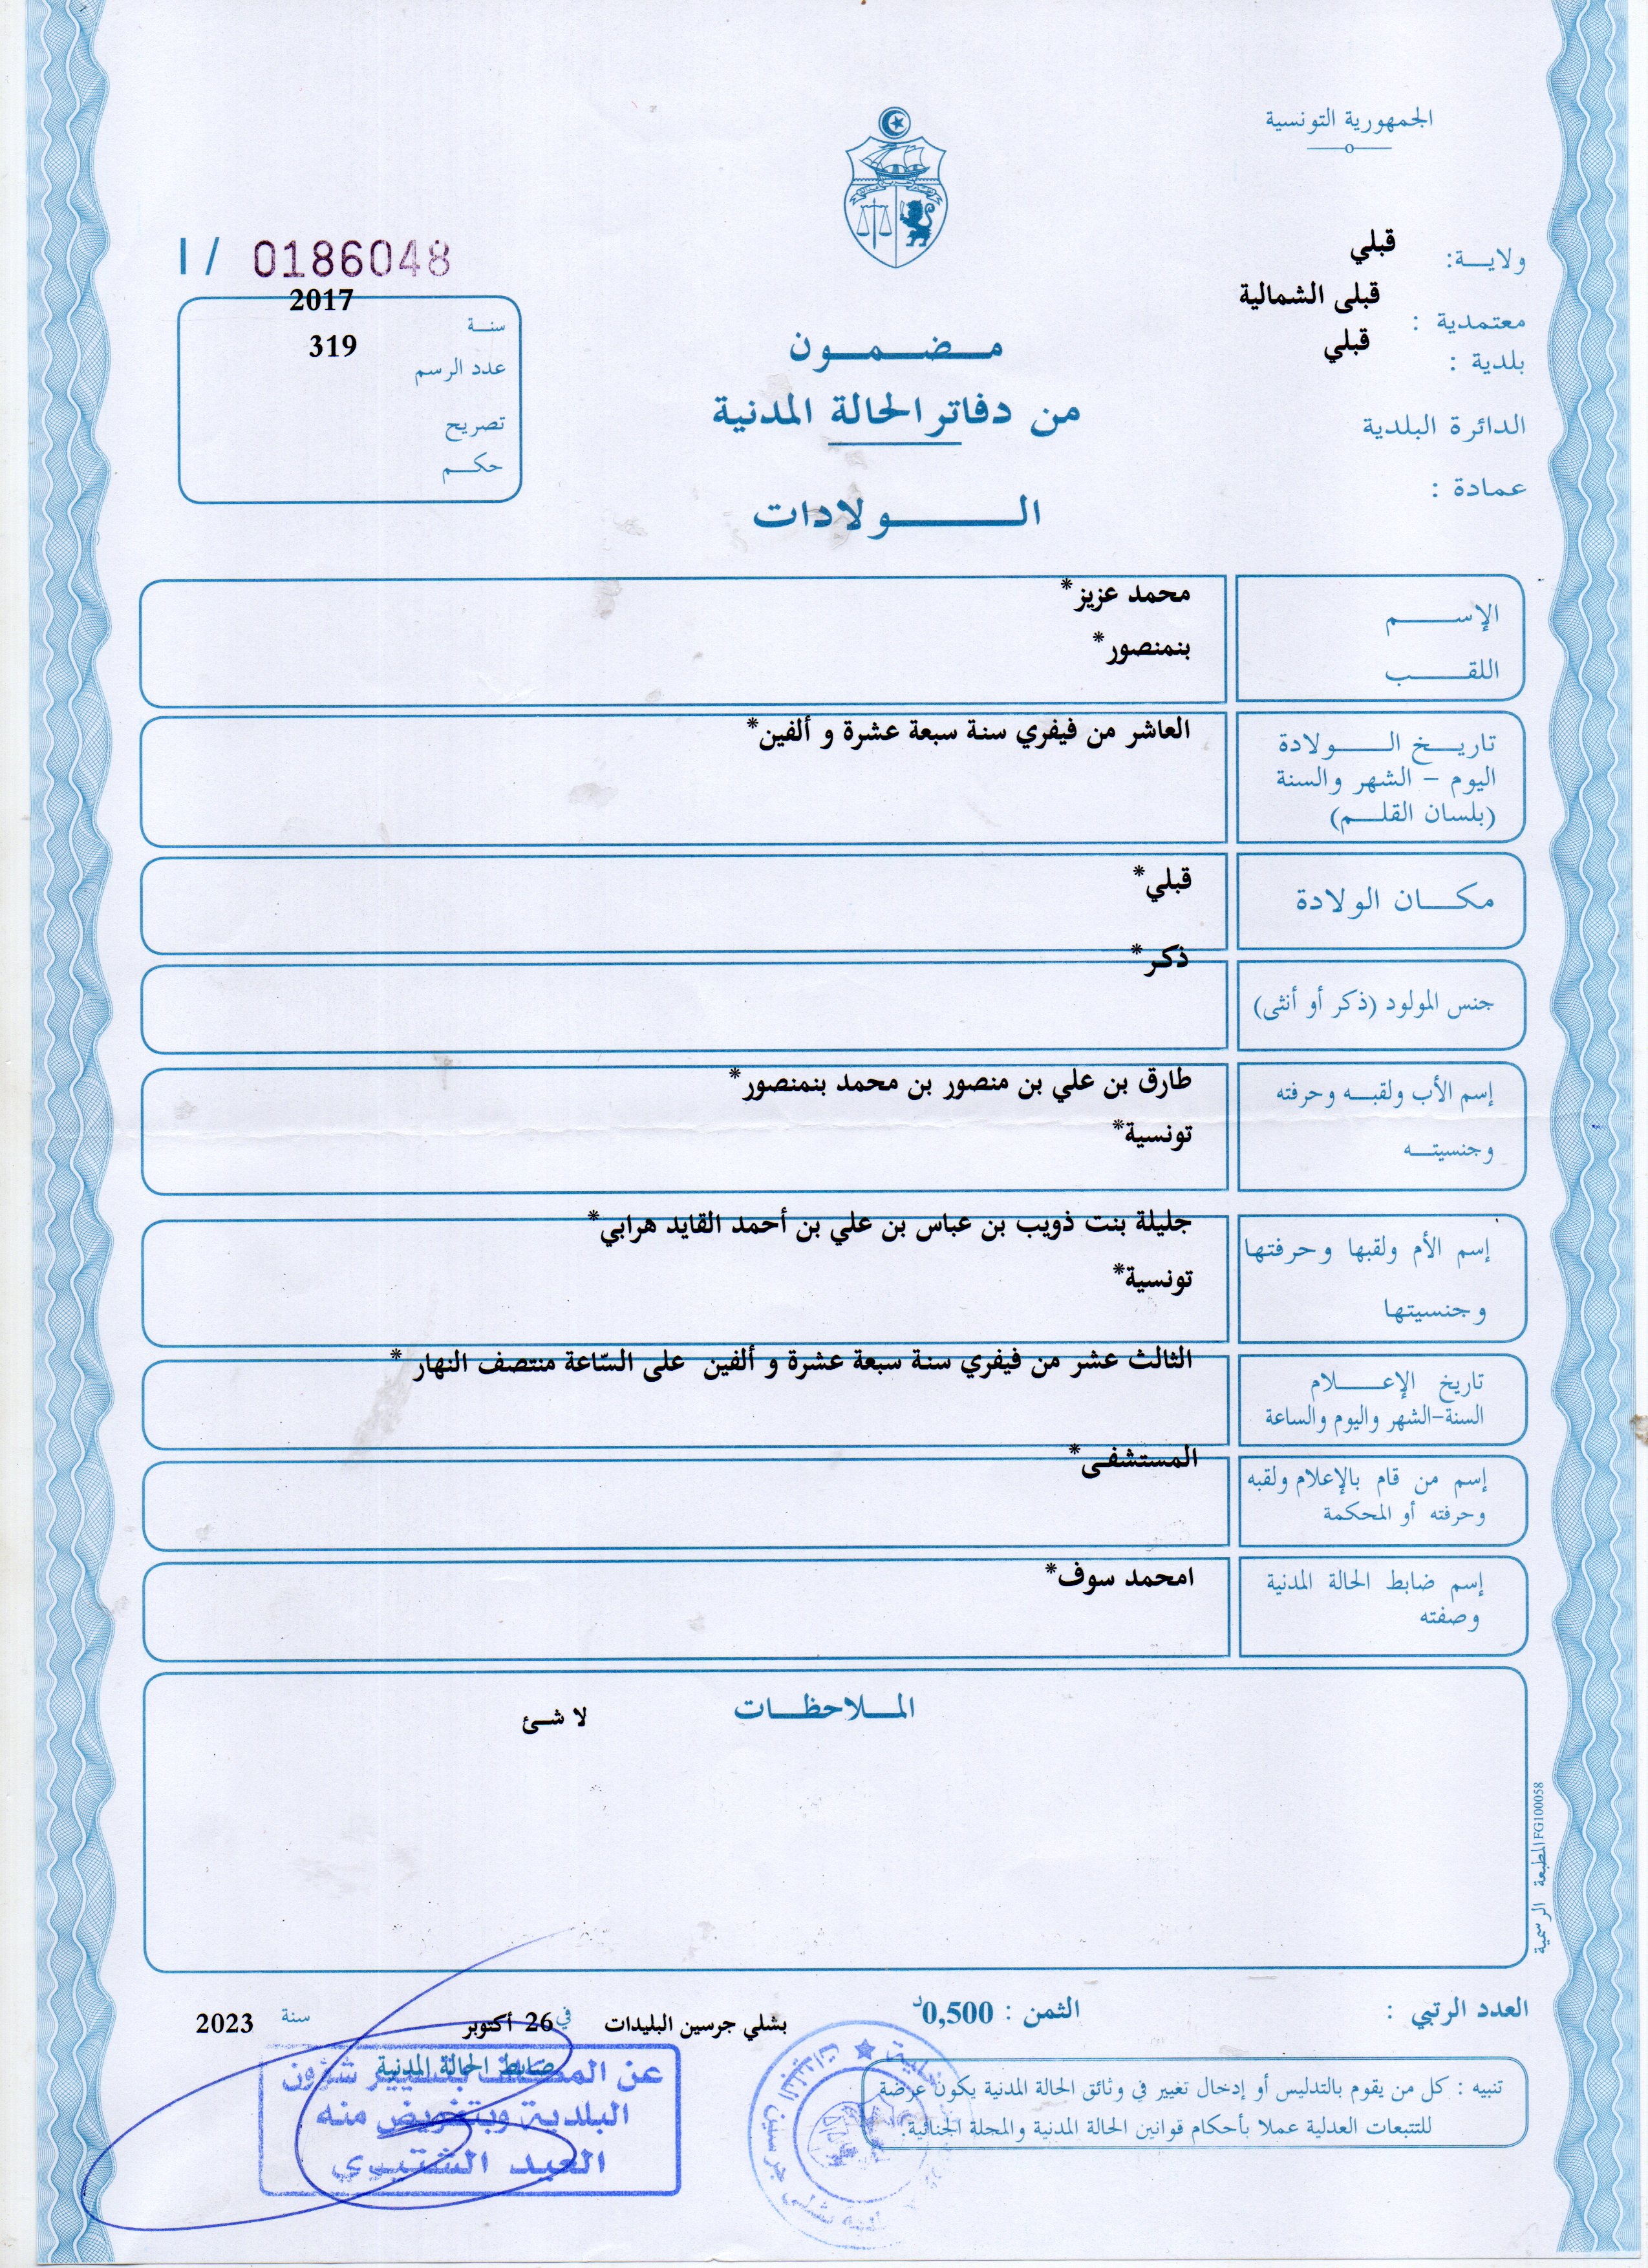 الجمهورية التونسية
ولايـــة: قبلي
معتمدية : قبلى الشمالية
بلدية : قبلي
الدائرة البلدية
عمادة :
I / 0186048
سنـــة 2017
عدد الرسم 319
تصريح
حكـــم
مـــضـــمـــون
من دفاتر الحالة المدنية
الـــــولادات
الإســــــم محمد عزيز*
اللقــــــب بنمنصور*
تاريـــخ الـــــولادة العاشر من فيفري سنة سبعة عشرة و ألفين*
اليوم – الشهر والسنة
(بلسان القلـــم)
مكـــان الولادة قبلي*
جنس المولود (ذكر أو أنثى) ذكر*
إسم الأب ولقبـــه وحرفته طارق بن علي بن منصور بن محمد بنمنصور*
وجنسيتـــه تونسية*
إسم الأم ولقبها وحرفتها جليلة بنت ذويب بن عباس بن علي بن أحمد القايد هرابي*
وجنسيتها تونسية*
تاريخ الإعـــــلام الثالث عشر من فيفري سنة سبعة عشرة و ألفين على السّاعة منتصف النهار *
السنة-الشهر واليوم والساعة
إسم من قام بالإعلام ولقبه المستشفى*
وحرفته أو المحكمة
إسم ضابط الحالة المدنية امحمد سوف*
وصفته
المـــلاحظـــات
لا شئ
المطبعة الرسمية FG100058
العدد الرتبي :
الثمن : 0,500د
بشلي جرسين البليدات في 26 أكتوبر سنة 2023
ضابط الحالة المدنية
عن المكلف بتسيير شؤون
البلدية وبتفويض منه
العبد الشتيوي
تنبيه : كل من يقوم بالتدليس أو إدخال تغيير في وثائق الحالة المدنية يكون عرضة
للتتبعات العدلية عملا بأحكام قوانين الحالة المدنية والمجلة الجنائية.